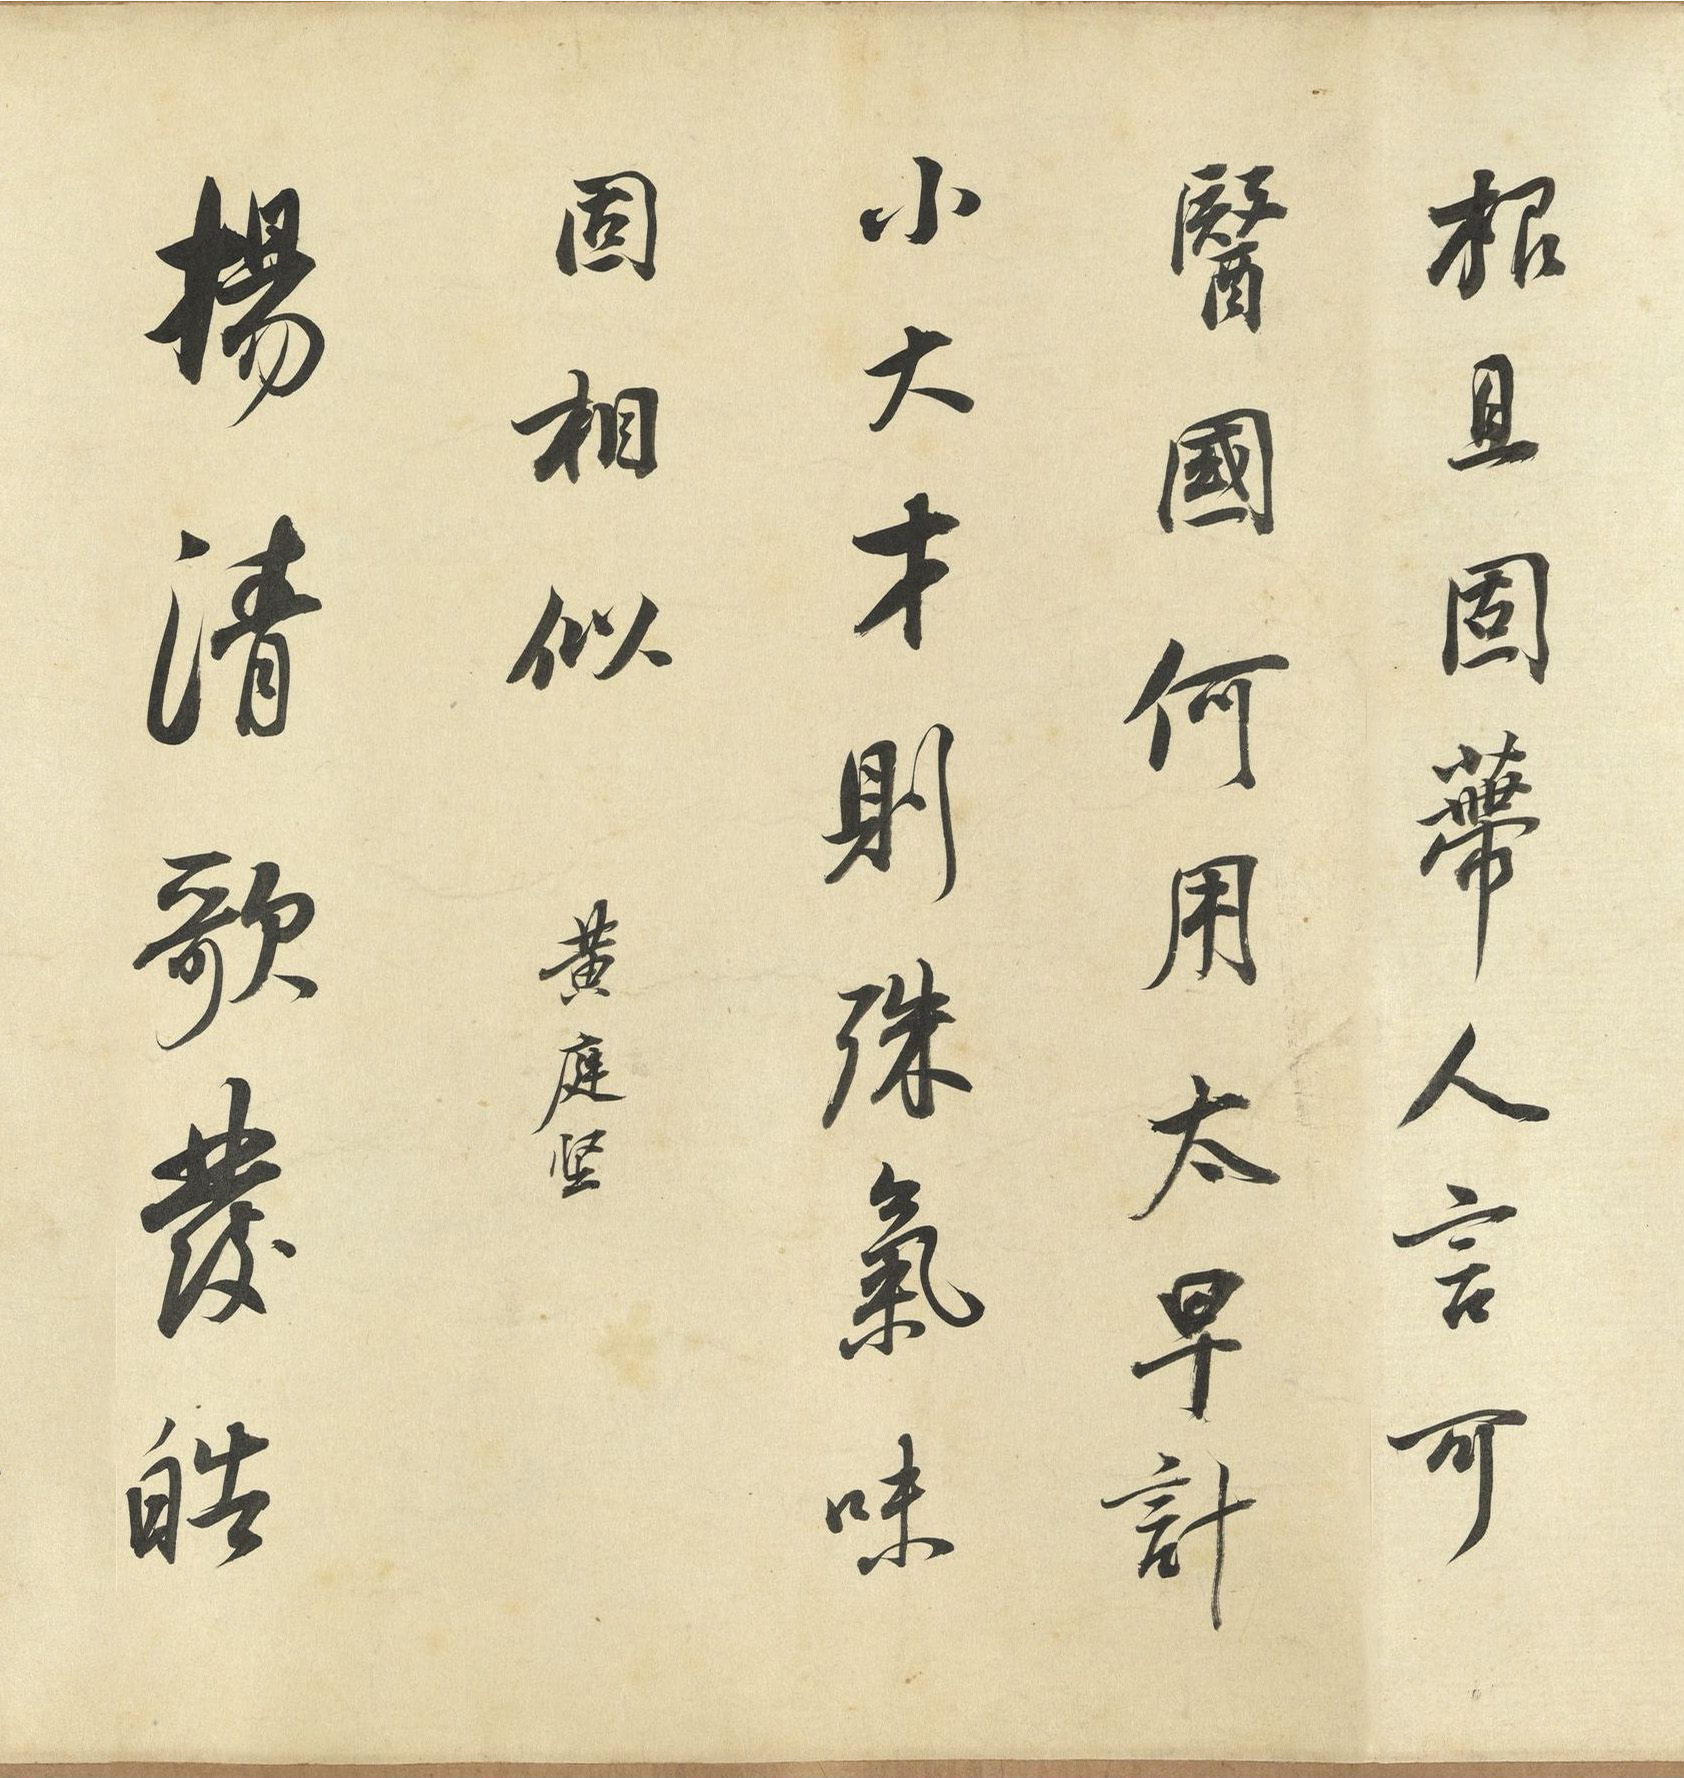 根且固蔕人言可
醫國何用太早計
小大才則殊氣味
固相似 黃庭堅
揚清歌發皓